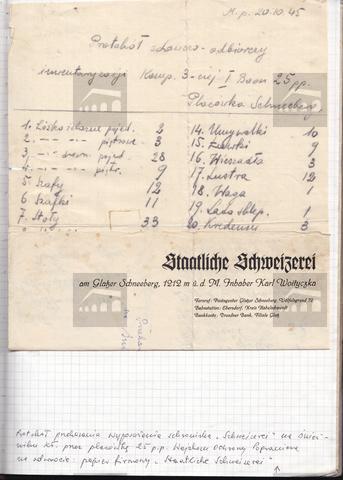 M.p. 20.10.45
Protokół zdawczo-odbiorczy
inwentaryzacji Komp. 3-ciej I Baon 25 pp.
Placówka Schneeberg
1. Łóżko żelazne pojed. 2
2. -"- -"- piętrowe 3
3. -"- drewn. pojed. 28
4. -"- -"- piętr. 9
5. Szafy 12
6. Szafki 11
7. Stoły 33
14. Umywalki 10
15. Zaluzki 9
16. Wieszadła 3
17. Lustra 12
18. Waga 1
19. Lada sklep. 1
20. Kredensu 3
Staatliche Schweizerei
am Glatzer Schneeberg, 1212 m ü. d. M. Inhaber Karl Woityczka
Fernruf: Postagentur Glatzer Schneeberg, Wölfelsgrund 72
Bahnstation: Ebersdorf, Kreis Habelschwerdt
Bankkonto: Dresdner Bank, Filiale Glatz
Protokół przekazania wyposażenia schroniska "Schweizerei" na Śnież-
niku Kł. przez placówkę 25 p.p. Wojskom Ochrony Pogranicza
na odwrocie: papier firmowy "Staatliche Schweizerei"